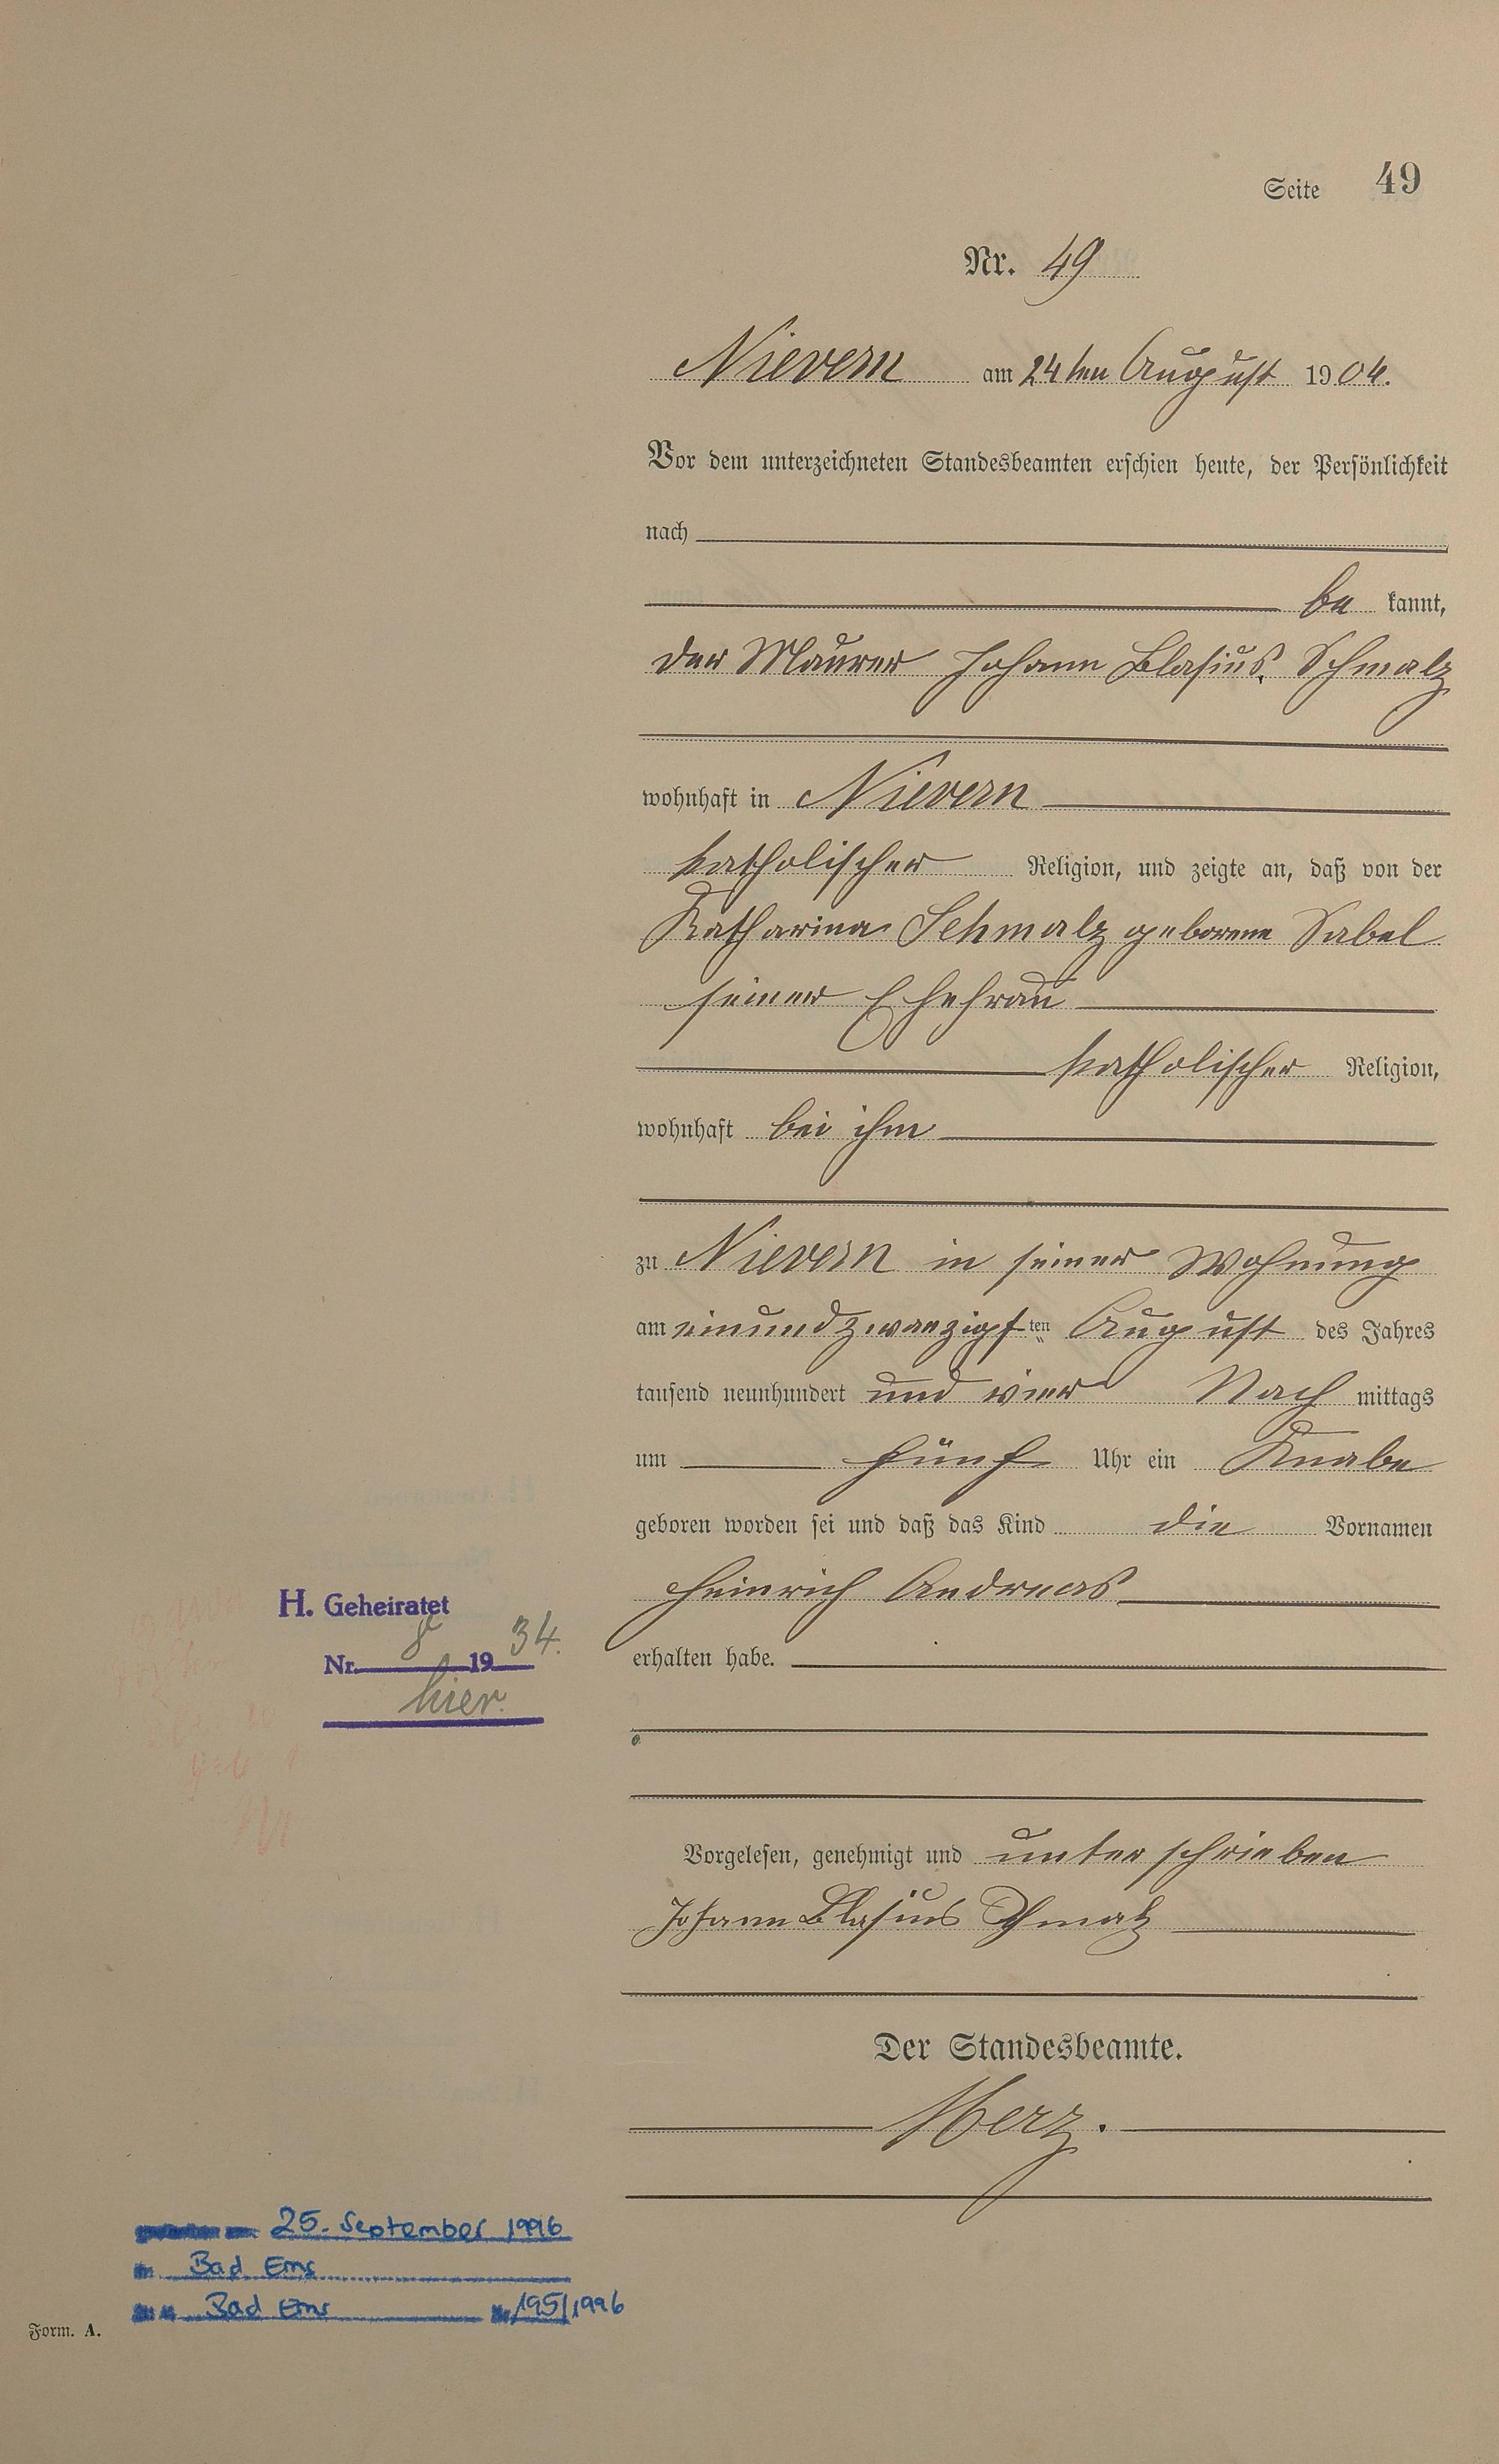 Seite 49
Nr. 49
Nievern am 24ten August 1904.
Vor dem unterzeichneten Standesbeamten erschien heute, der Persönlichkeit
nach
be kannt,
der Maurer Johann Blasius Schmalz
wohnhaft in Nievern
katholischer Religion, und zeigte an, daß von der
Katharina Schmalz geborene Sabel
seiner Ehefrau
katholischer Religion,
wohnhaft bei ihm
zu Nievern in seiner Wohnung
am einundzwanzigsten August des Jahres
tausend neunhundert und vier Nach mittags
um fünf Uhr ein Knabe
geboren worden sei und daß das Kind die Vornamen
Heinrich Andreas
erhalten habe.
H. Geheiratet
Nr. 8 1934.
hier.
Vorgelesen, genehmigt und unterschrieben
Johann Blasius Schmalz
Der Standesbeamte.
Merz.
25. September 1996
Bad Ems
Bad Ems 195/1996
Form. A.